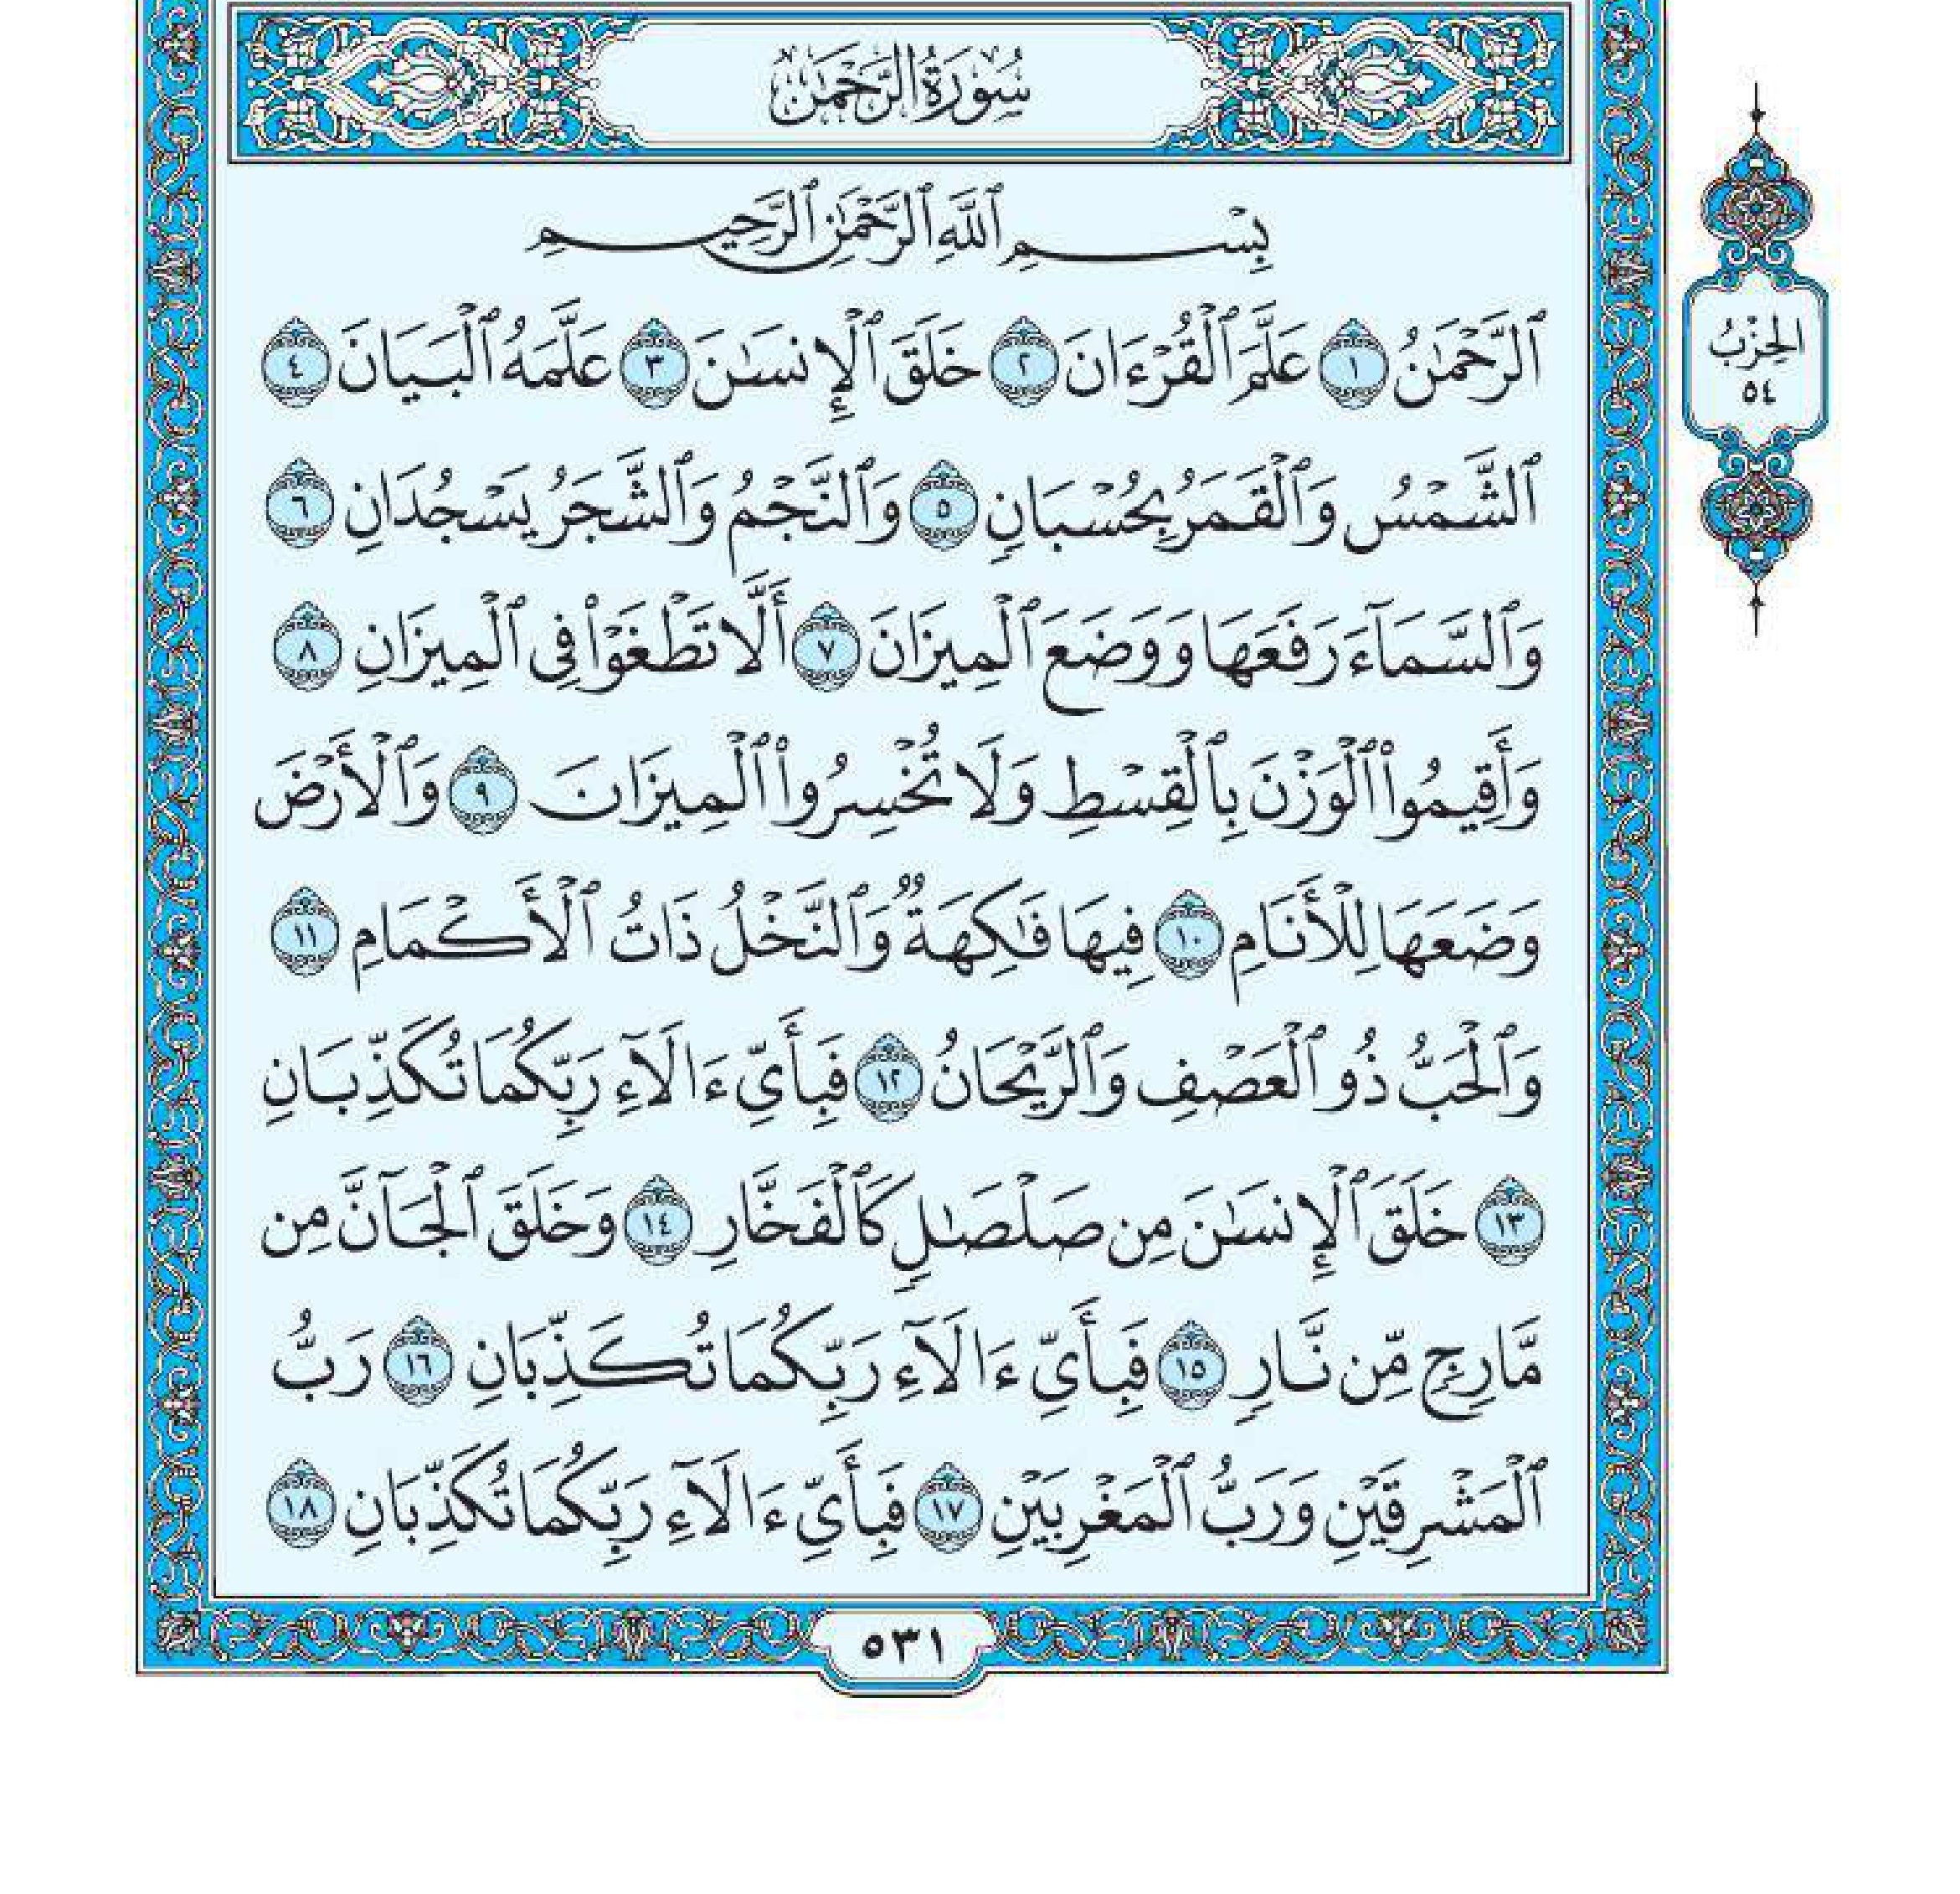 سُورَةُ الرَّحْمَٰن
بِسْمِ ٱللَّهِ ٱلرَّحْمَٰنِ ٱلرَّحِيمِ
ٱلرَّحْمَٰنُ ١ عَلَّمَ ٱلْقُرْءَانَ ٢ خَلَقَ ٱلْإِنسَٰنَ ٣ عَلَّمَهُ ٱلْبَيَانَ ٤
ٱلشَّمْسُ وَٱلْقَمَرُ بِحُسْبَانٍ ٥ وَٱلنَّجْمُ وَٱلشَّجَرُ يَسْجُدَانِ ٦
وَٱلسَّمَآءَ رَفَعَهَا وَوَضَعَ ٱلْمِيزَانَ ٧ أَلَّا تَطْغَوْا۟ فِى ٱلْمِيزَانِ ٨
وَأَقِيمُوا۟ ٱلْوَزْنَ بِٱلْقِسْطِ وَلَا تُخْسِرُوا۟ ٱلْمِيزَانَ ٩ وَٱلْأَرْضَ
وَضَعَهَا لِلْأَنَامِ ١٠ فِيهَا فَٰكِهَةٌ وَٱلنَّخْلُ ذَاتُ ٱلْأَكْمَامِ ١١
وَٱلْحَبُّ ذُو ٱلْعَصْفِ وَٱلرَّيْحَانُ ١٢ فَبِأَىِّ ءَالَآءِ رَبِّكُمَا تُكَذِّبَانِ
١٣ خَلَقَ ٱلْإِنسَٰنَ مِن صَلْصَٰلٍ كَٱلْفَخَّارِ ١٤ وَخَلَقَ ٱلْجَآنَّ مِن
مَّارِجٍ مِّن نَّارٍ ١٥ فَبِأَىِّ ءَالَآءِ رَبِّكُمَا تُكَذِّبَانِ ١٦ رَبُّ
ٱلْمَشْرِقَيْنِ وَرَبُّ ٱلْمَغْرِبَيْنِ ١٧ فَبِأَىِّ ءَالَآءِ رَبِّكُمَا تُكَذِّبَانِ ١٨
الحِزْبُ
٥٤
٥٣١